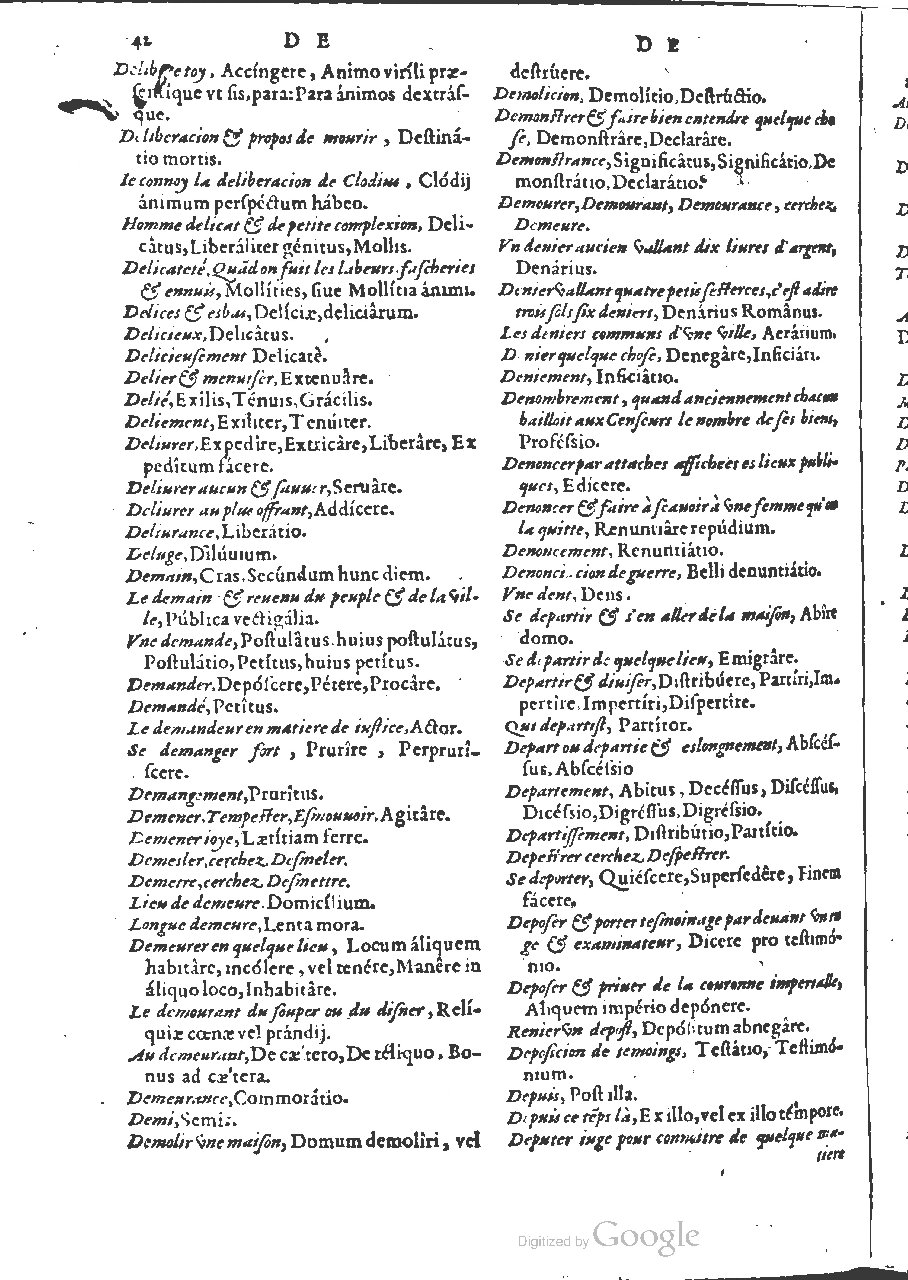 42 D E
D E
Delibere toy, Accíngere, Animo viríli præ-
sentique vt sis, para: Para ánimos dextrás-
que.
Deliberacion & propos de mourir, Destiná-
tio mortis.
Ie connoy la deliberacion de Clodius, Clódij
ánimum perspéctum hábeo.
Homme delicat & de petite complexion, Deli-
câtus, Liberáliter génitus, Mollis.
Delicateté, Quãd on fuit les labeurs, fascheries
& ennuis, Mollíties, siue Mollítia ánimi.
Delices & esbas, Delíciæ, deliciârum.
Delicieux, Delicâtus.
Delicieusement Delicatè.
Delier & menuiser, Extenuâre.
Delié, Exílis, Ténuis, Grácilis.
Deliement, Exíliter, Tenúiter.
Deliurer, Expedîre, Extricâre, Liberâre, Ex
pedítum fácere.
Deliurer aucun & sauuer, Seruâre.
Deliurer au plus offrant, Addícere.
Deliurance, Liberátio.
Deluge, Dilúuium.
Demain, Cras, Secúndum hunc diem.
Le demain & reuenu du peuple & de la vil-
le, Pública vectigália.
Vne demande, Postulâtus, huius postulátus,
Postulátio, Petítus, huius petítus.
Demander, Depóscere, Pétere, Procâre.
Demandé, Petîtus.
Le demandeur en matiere de iustice, Actor.
Se demanger fort, Prurîre, Perprurî-
scere.
Demangement, Prurîtus.
Demener, Tempester, Esmouuoir, Agitâre.
Demener ioye, Lætítiam ferre.
Demesler, cerchez, Desmeler.
Demettre, cerchez, Desmettre.
Lieu de demeure, Domicílium.
Longue demeure, Lenta mora.
Demeurer en quelque lieu, Locum áliquem
habitâre, incólere, vel tenére, Manêre in
áliquo loco, Inhabitâre.
Le demourant du souper ou du disner, Relí-
quiæ cœnæ vel prándij.
Au demeurant, De cæ'tero, De réliquo, Bo-
nus ad cæ'tera.
Demeurance, Commorátio.
Demi, Semis.
Demolir vne maison, Domum demolíri, vel
destrúere.
Demolicion, Demolítio, Destrúctio.
Demonstrer & faire bien entendre quelque cho
se, Demonstrâre, Declarâre.
Demonstrance, Significâtus, Significátio, De
monstrátio, Declarátio.
Demourer, Demourant, Demourance, cerchez,
Demeure.
Vn denier ancien vallant dix liures d'argent,
Denárius.
Denier vallant quatre petis sesterces, c'est adire
trois sols six deniers, Denárius Románus.
Les deniers communs d'vne ville, Aerárium.
Denier quelque chose, Denegâre, Inficiári.
Deniement, Inficiâtio.
Denombrement, quand anciennement chacun
bailloit aux Censeurs le nombre de ses biens,
Proféssio.
Denoncer par attaches affichees es lieux publi-
ques, Edícere.
Denoncer & faire à scauoir à vne femme qu'on
la quitte, Renuntiâre repúdium.
Denoncement, Renuntiátio.
Denonciacion de guerre, Belli denuntiátio.
Vne dent, Dens.
Se departir & s'en aller de la maison, Abîre
domo.
Se departir de quelque lieu, Emigrâre.
Departir & diuiser, Distribúere, Partíri, Im-
pertíre, Impertíri, Dispertîre.
Qui departist, Partítor.
Depart ou departie & eslongnement, Abscés-
sus, Abscéssio
Departement, Abitus, Decéssus, Discéssus,
Dicéssio, Digréssus, Digréssio.
Departissement, Distribútio, Partítio.
Depestrer cerchez, Despestrer.
Se deporter, Quiéscere, Supersedêre, Finem
fácere.
Deposer & porter tesmoinage par deuant vn iu
ge & examinateur, Dicere pro testimó-
nio.
Deposer & priuer de la couronne imperialle,
Aliquem império depónere.
Renier vn depost, Depósitum abnegâre.
Deposicion de temoings, Testátio, Testimó-
nium.
Depuis, Post illa.
Depuis ce tẽps là, Ex illo, vel ex illo témpore.
Deputer iuge pour connoitre de quelque ma-
tiere
Digitized by Google